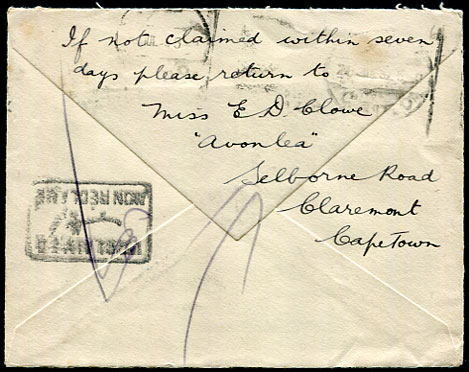 If not claimed within seven
days please return to
Miss E. D. Clowe
"Avonlea"
Selborne Road
Claremont
CapeTown
NON RECLAMÉ
UNCLAIMED